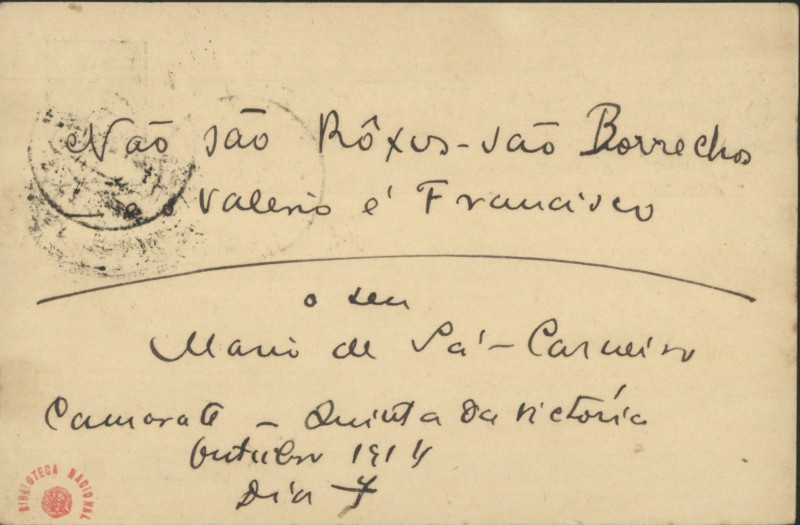 Não são Rôxos - são Borrachos
— e o Valerio é Francisco
o seu
Mario de Sá-Carneiro
Camarate - Quinta da Victória
Outubro 1914
Dia 7
BIBLIOTECA NACIONAL